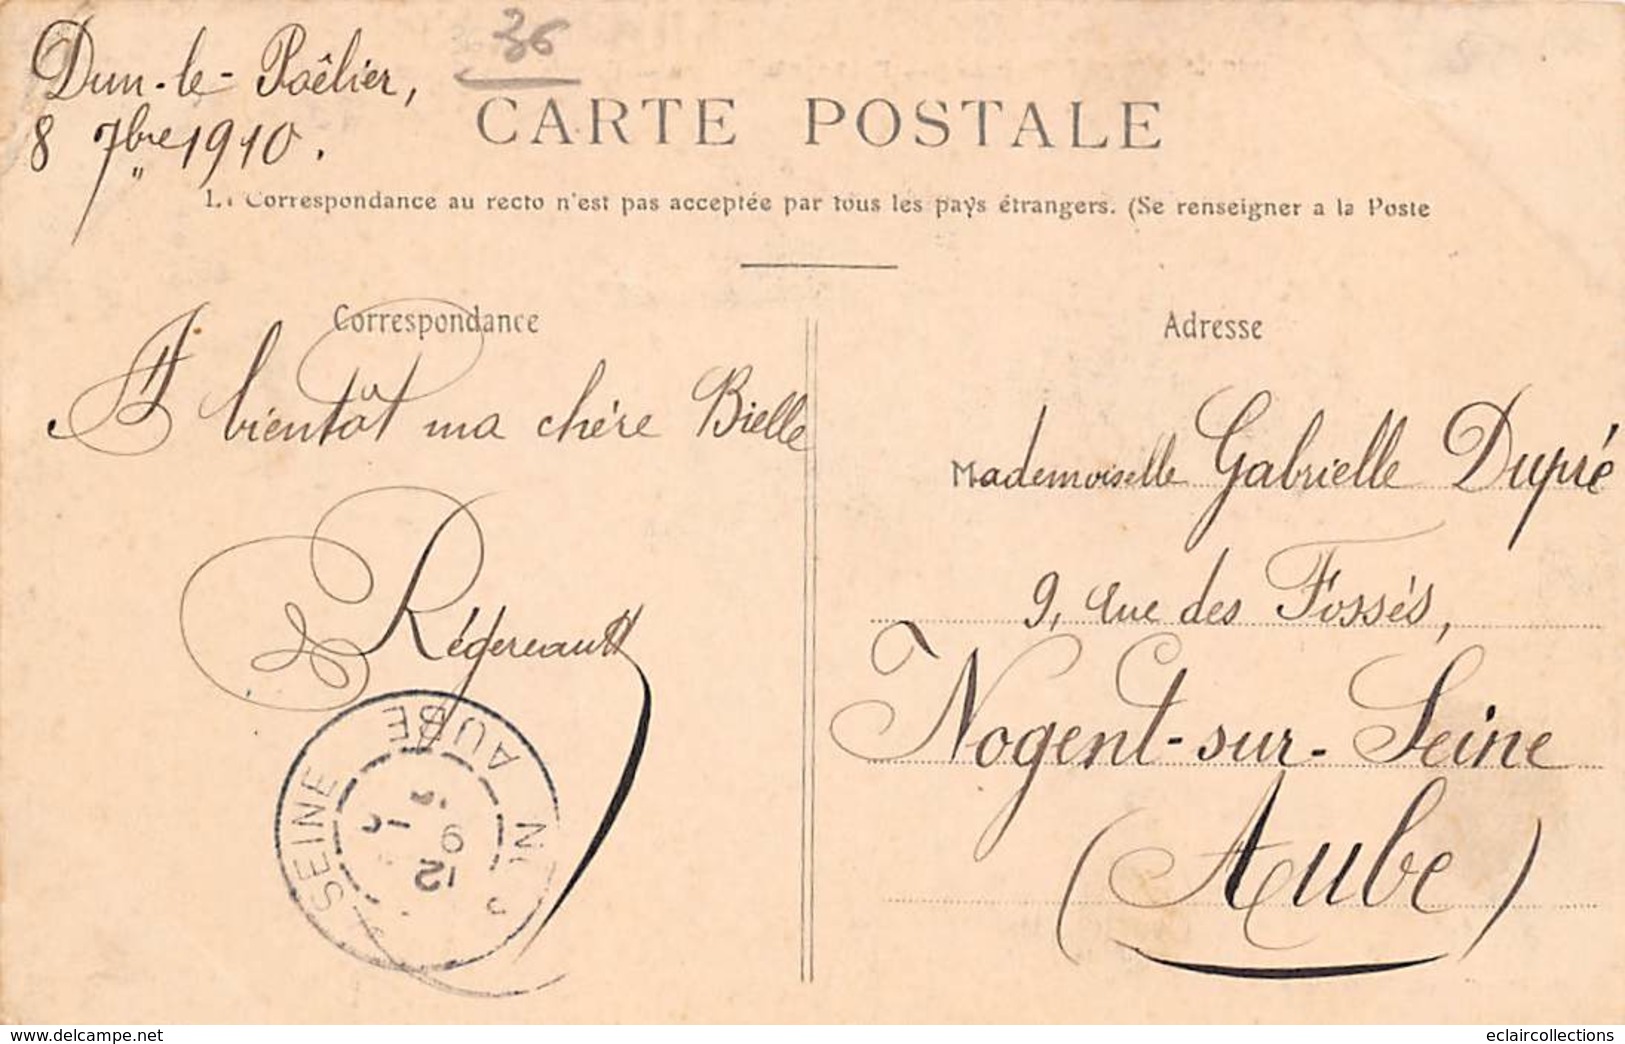 36
Dun-le-Poêlier,
8 7bre 1910.
CARTE POSTALE
La Correspondance au recto n'est pas acceptée par tous les pays étrangers. (Se renseigner a la Poste
Correspondance
A bientôt ma chère Bielle
SEINE
AUBE
12
9
Adresse
Mademoiselle Gabrielle Dupré
9, rue des Fossés,
Nogent-sur-Seine
(Aube)
www.delcampe.net
eclaircollections